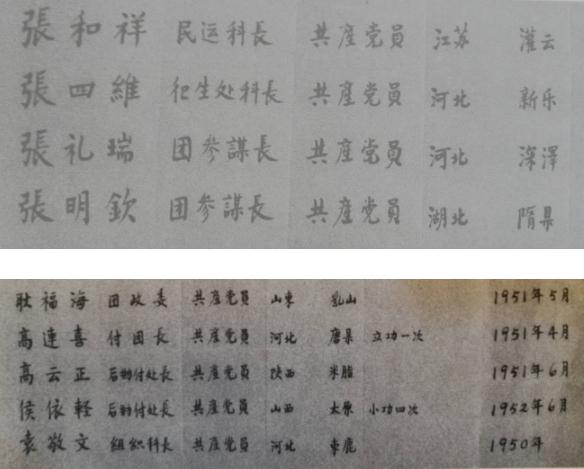 張和祥 民运科長 共產党員 江苏 灌云
張四維 卫生处科長 共產党員 河北 新乐
張礼瑞 团参謀長 共產党員 河北 深澤
張明欽 团参謀長 共產党員 湖北 隋県
耿福海 团政委 共產党員 山東 乳山 1951年5月
高連喜 付团長 共產党員 河北 唐県 立功一次 1951年4月
高云正 后勤付处長 共產党員 陕西 米脂 1951年6月
侯依軽 后勤付处長 共產党員 山西 太原 小功四次 1952年6月
袁敬文 組織科長 共產党員 河北 束鹿 1950年